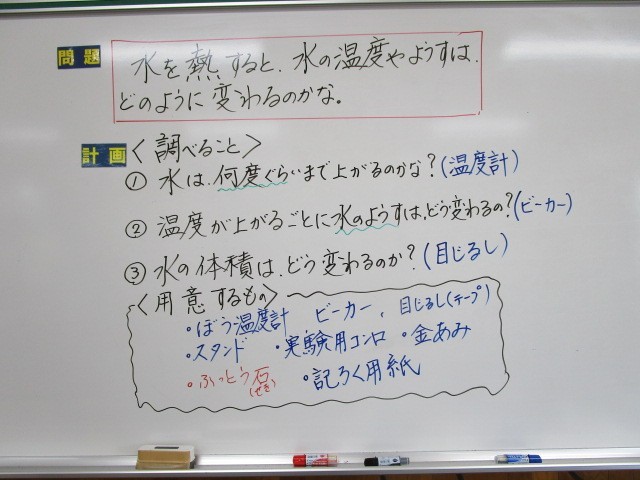 問題
水を熱すると、水の温度やようすは、
どのように変わるのかな。
計画
〈調べること〉
① 水は、何度ぐらいまで上がるのかな？(温度計)
② 温度が上がるごとに水のようすは、どう変わるの？(ビーカー)
③ 水の体積は、どう変わるのか？(目じるし)
〈用意するもの〉
・ぼう温度計 ビーカー、目じるし(テープ)
・スタンド ・実験用コンロ ・金あみ
・ふっとう石(せき) ・記ろく用紙